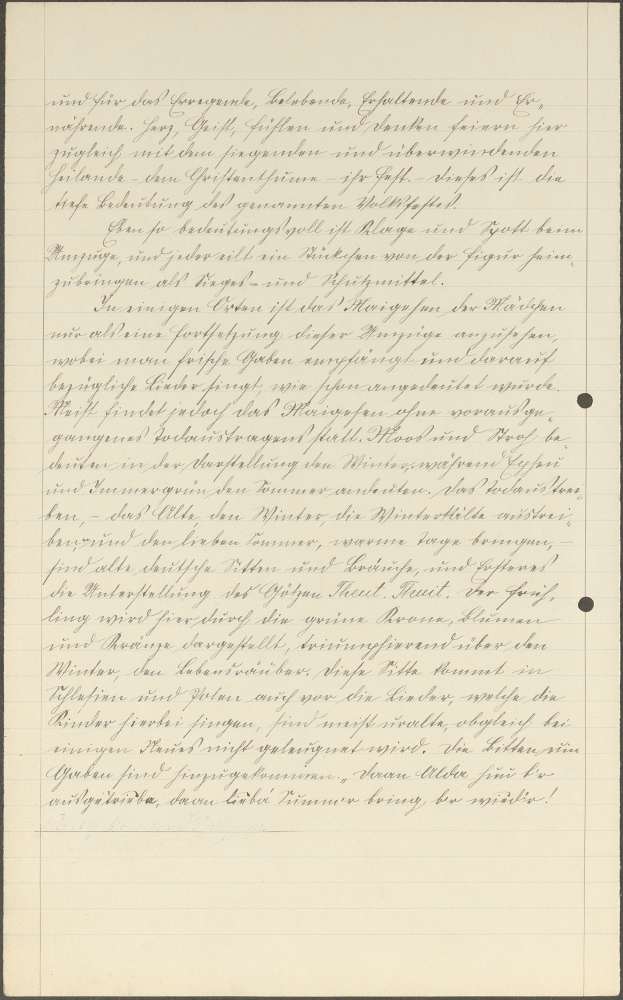 und für das Erregende, Belebende, Erhaltende und Er-
nährende. Herz, Geist, Fühlen und Denken feiern hier
zugleich mit dem siegenden und überwindenden
Heilande - dem Christenthume - ihr Fest. - Dieses ist die
tiefe Bedeutung des genannten Volksfestes.
Eben so bedeutungsvoll ist Klage und Spott beim
Umzuge, und jeder eilt ein Stückchen von der Figur heim-
zubringen als Sieges- und Schutzmittel.
In einigen Orten ist das Maigehen der Mädchen
nur als eine Fortsetzung dieser Umzüge anzusehen,
wobei man frische Gaben empfängt und darauf
bezügliche Lieder singt, wie schon angedeutet wurde.
Meist findet jedoch das Maigehen ohne vorausge-
gangenes Todaustragens statt. Moos und Stroh be-
deuten in der Darstellung den Winter, während Epheu
und Immergrün den Sommer andeuten. Das Todaustrei-
ben, - das Alte, den Winter, die Winterkälte austrei-
ben, und den lieben Sommer, warme Tage bringen, -
sind alte deutsche Sitten und Bräuche, und Ersteres
die Unterstellung des Götzen Der Früh-
ling wird hier durch die grüne Krone, Blumen
und Kränze dargestellt, triumphierend über den
Winter, den Lebensräuber. Diese Sitte kommt in
Schlesien und Polen auch vor die Lieder, welche die
Kinder hierbei singen, sind meist uralte, obgleich bei
einigen Neues nicht geleugnet wird. Die Bitten um
Gaben sind hinzugekommen. „Daan Alda
ausgetrieba, daan Summer bring wieder!